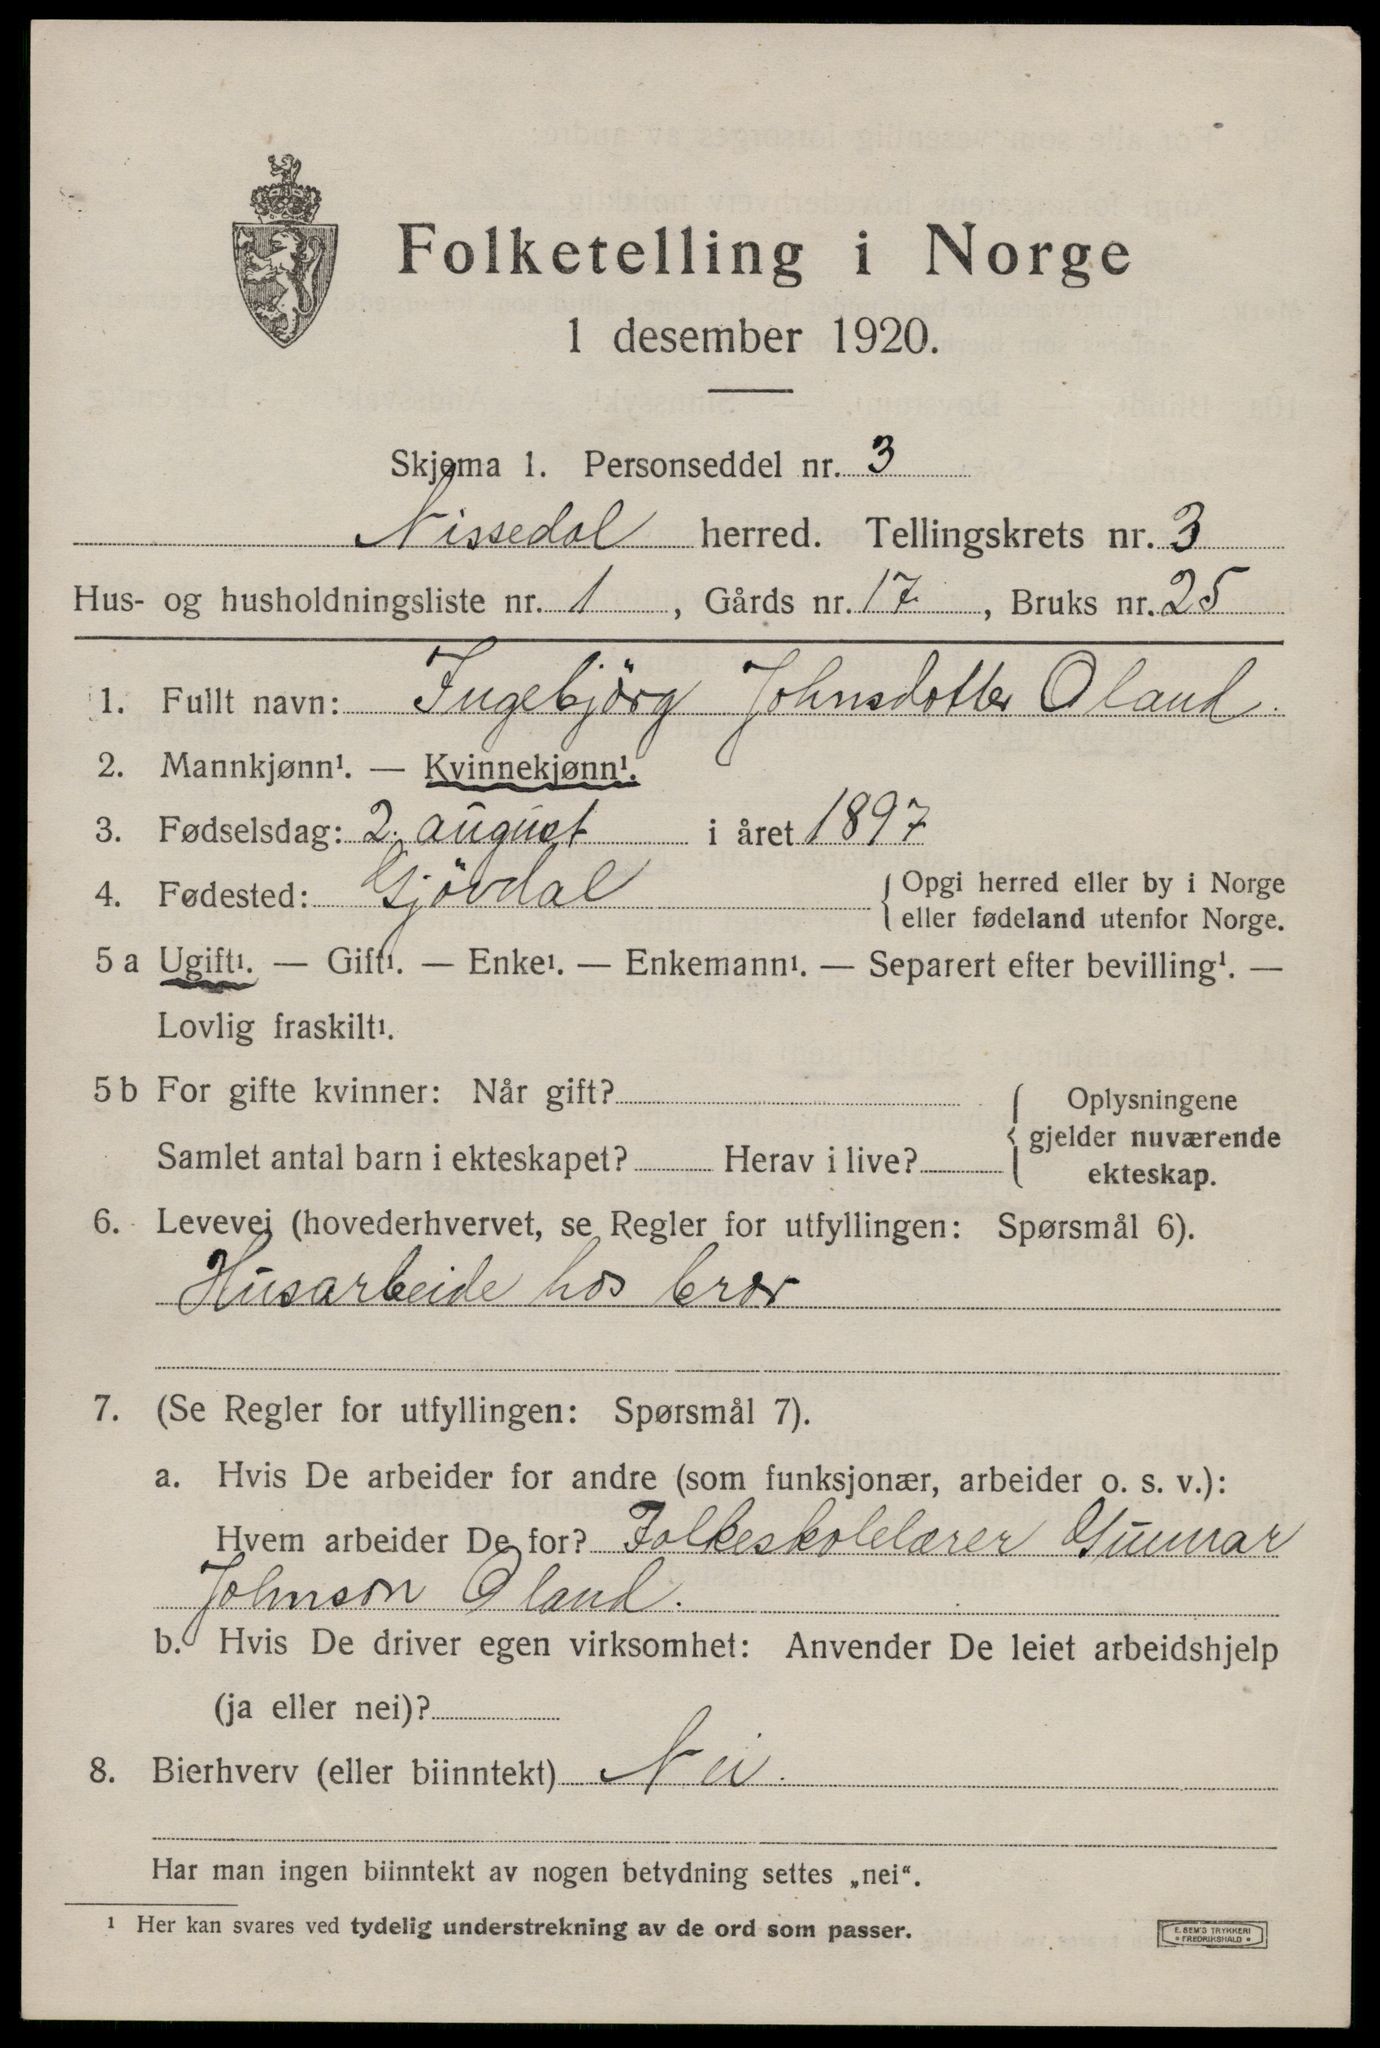 Folketelling i Norge
1 desember 1920.
Skjema 1. Personseddel nr. 3
Nissedal herred. Tellingskrets nr. 3
Hus- og husholdningsliste nr. 1, Gårds nr. 17, Bruks nr. 25
1. Fullt navn: Ingebjörg Johnsdotter Oland.
2. Mannkjønn¹. — Kvinnekjønn¹.
3. Fødselsdag: 2. august i året 1897
4. Fødested: Gjövdal { Opgi herred eller by i Norge
eller fødeland utenfor Norge.
5 a Ugift¹. — Gift¹. — Enke¹. — Enkemann¹. — Separert efter bevilling¹. —
Lovlig fraskilt¹.
5 b For gifte kvinner: Når gift? { Oplysningene
gjelder nuværende
Samlet antal barn i ekteskapet? Herav i live? ekteskap.
6. Levevei (hovederhvervet, se Regler for utfyllingen: Spørsmål 6).
Husarbeide hos bror
7. (Se Regler for utfyllingen: Spørsmål 7).
a. Hvis De arbeider for andre (som funksjonær, arbeider o. s. v.):
Hvem arbeider De for? Folkeskolelærer Gunnar
Johnson Oland.
b. Hvis De driver egen virksomhet: Anvender De leiet arbeidshjelp
(ja eller nei)?
8. Bierhverv (eller biinntekt) Nei.
Har man ingen biinntekt av nogen betydning settes „nei“.
¹ Her kan svares ved tydelig understrekning av de ord som passer.
E. SEM'S TRYKKERI
* FREDRIKSHALD *